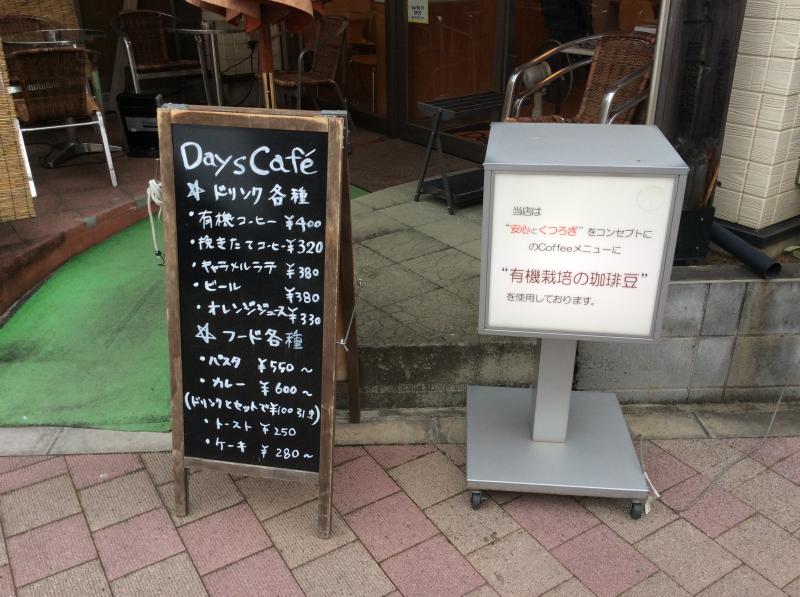 Days Café
☆ドリンク各種
・有機コーヒー ¥400
・挽きたてコーヒー ¥320
・キャラメルラテ ¥380
・ビール ¥380
・オレンジジュース ¥330
☆フード各種
・パスタ ¥550～
・カレー ¥600～
(ドリンクとセットで¥100引き)
・トースト ¥250
・ケーキ ¥280～
当店は
"安心とくつろぎ"をコンセプトに
のCoffeeメニューに
"有機栽培の珈琲豆"
を使用しております。